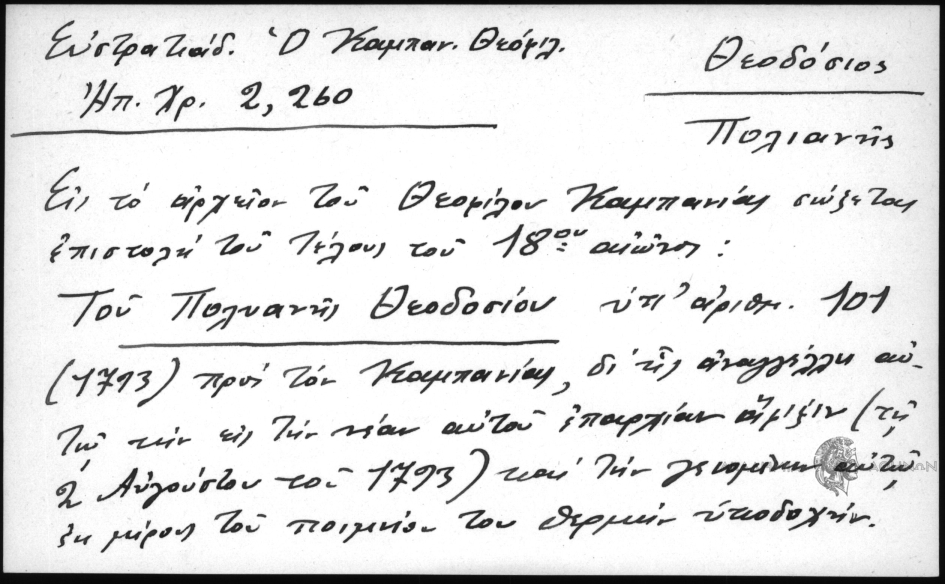 Εὐστρατιάδ. Ὁ Καμπαν. Θεόφιλ.
Ἠπ. Χρ. 2, 260
Θεοδόσιος
Πολιανῆς
Εἰς τό ἀρχεῖον τοῦ Θεοφίλου Καμπανίας σώζεται
ἐπιστολή τοῦ τέλους τοῦ 18ου αἰῶνος:
Τοῦ Πολυανῆς Θεοδοσίου ὑπ' ἀριθμ. 101
(1793) πρός τόν Καμπανίας, δι' ἧς ἀναγγέλλει αὐ-
τῷ τήν εἰς τήν νέαν αὐτοῦ ἐπαρχίαν ἄφιξιν (τῇ
2 Αὐγούστου τοῦ 1793) καί τήν γενομένην αὐτῷ
ἐκ μέρους τοῦ ποιμνίου του θερμήν ὑποδοχήν.